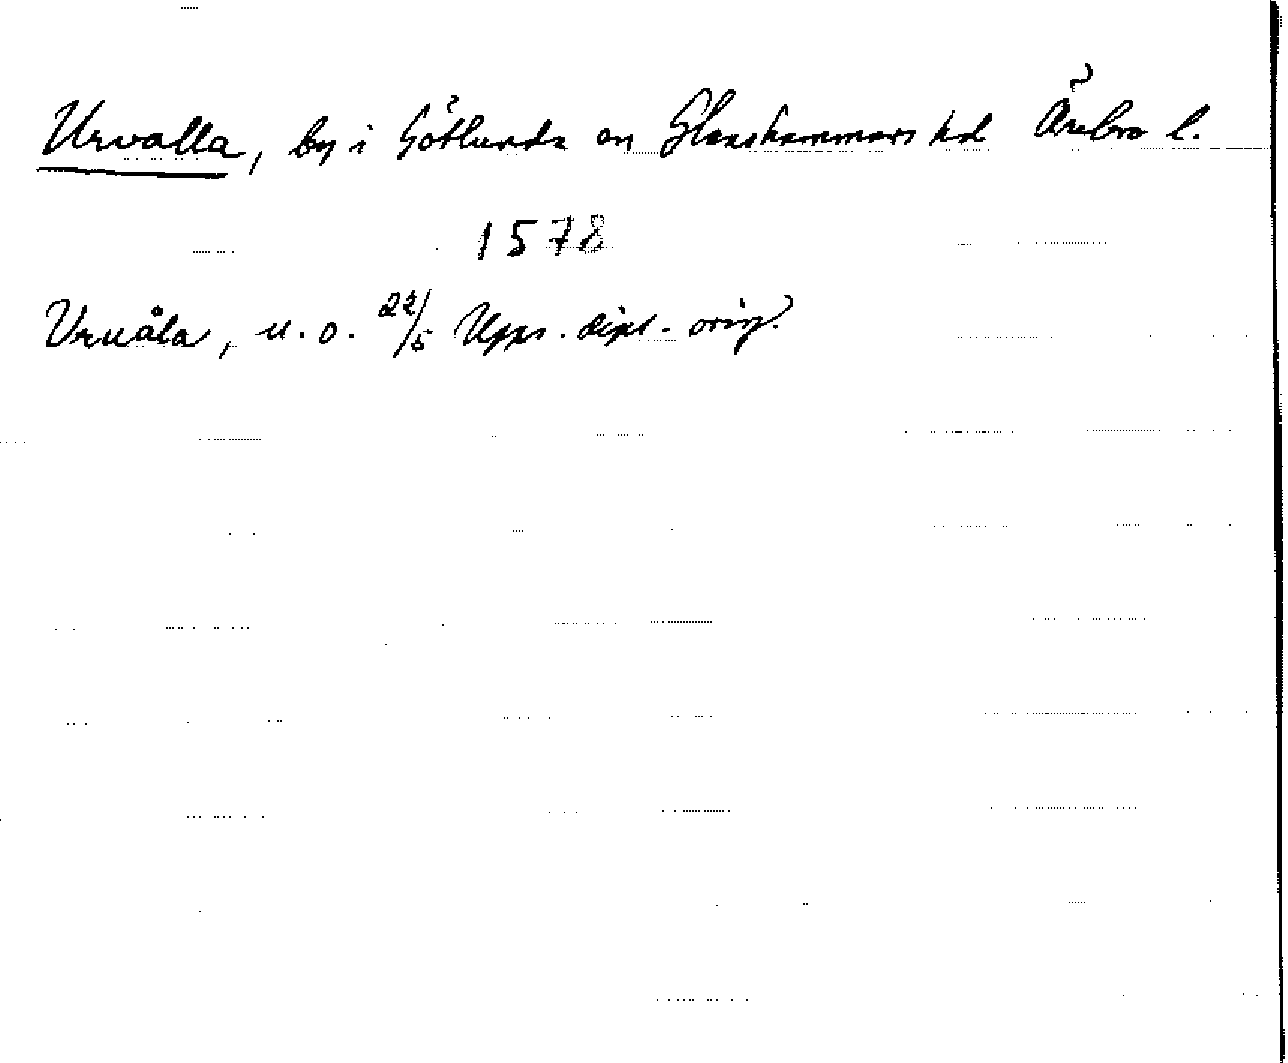 Urvalla, by i Götlunda sn Glanshammars hd Örebro l.
1578
Uruåla, u. o. 22/5 Upps. dipl. orig.